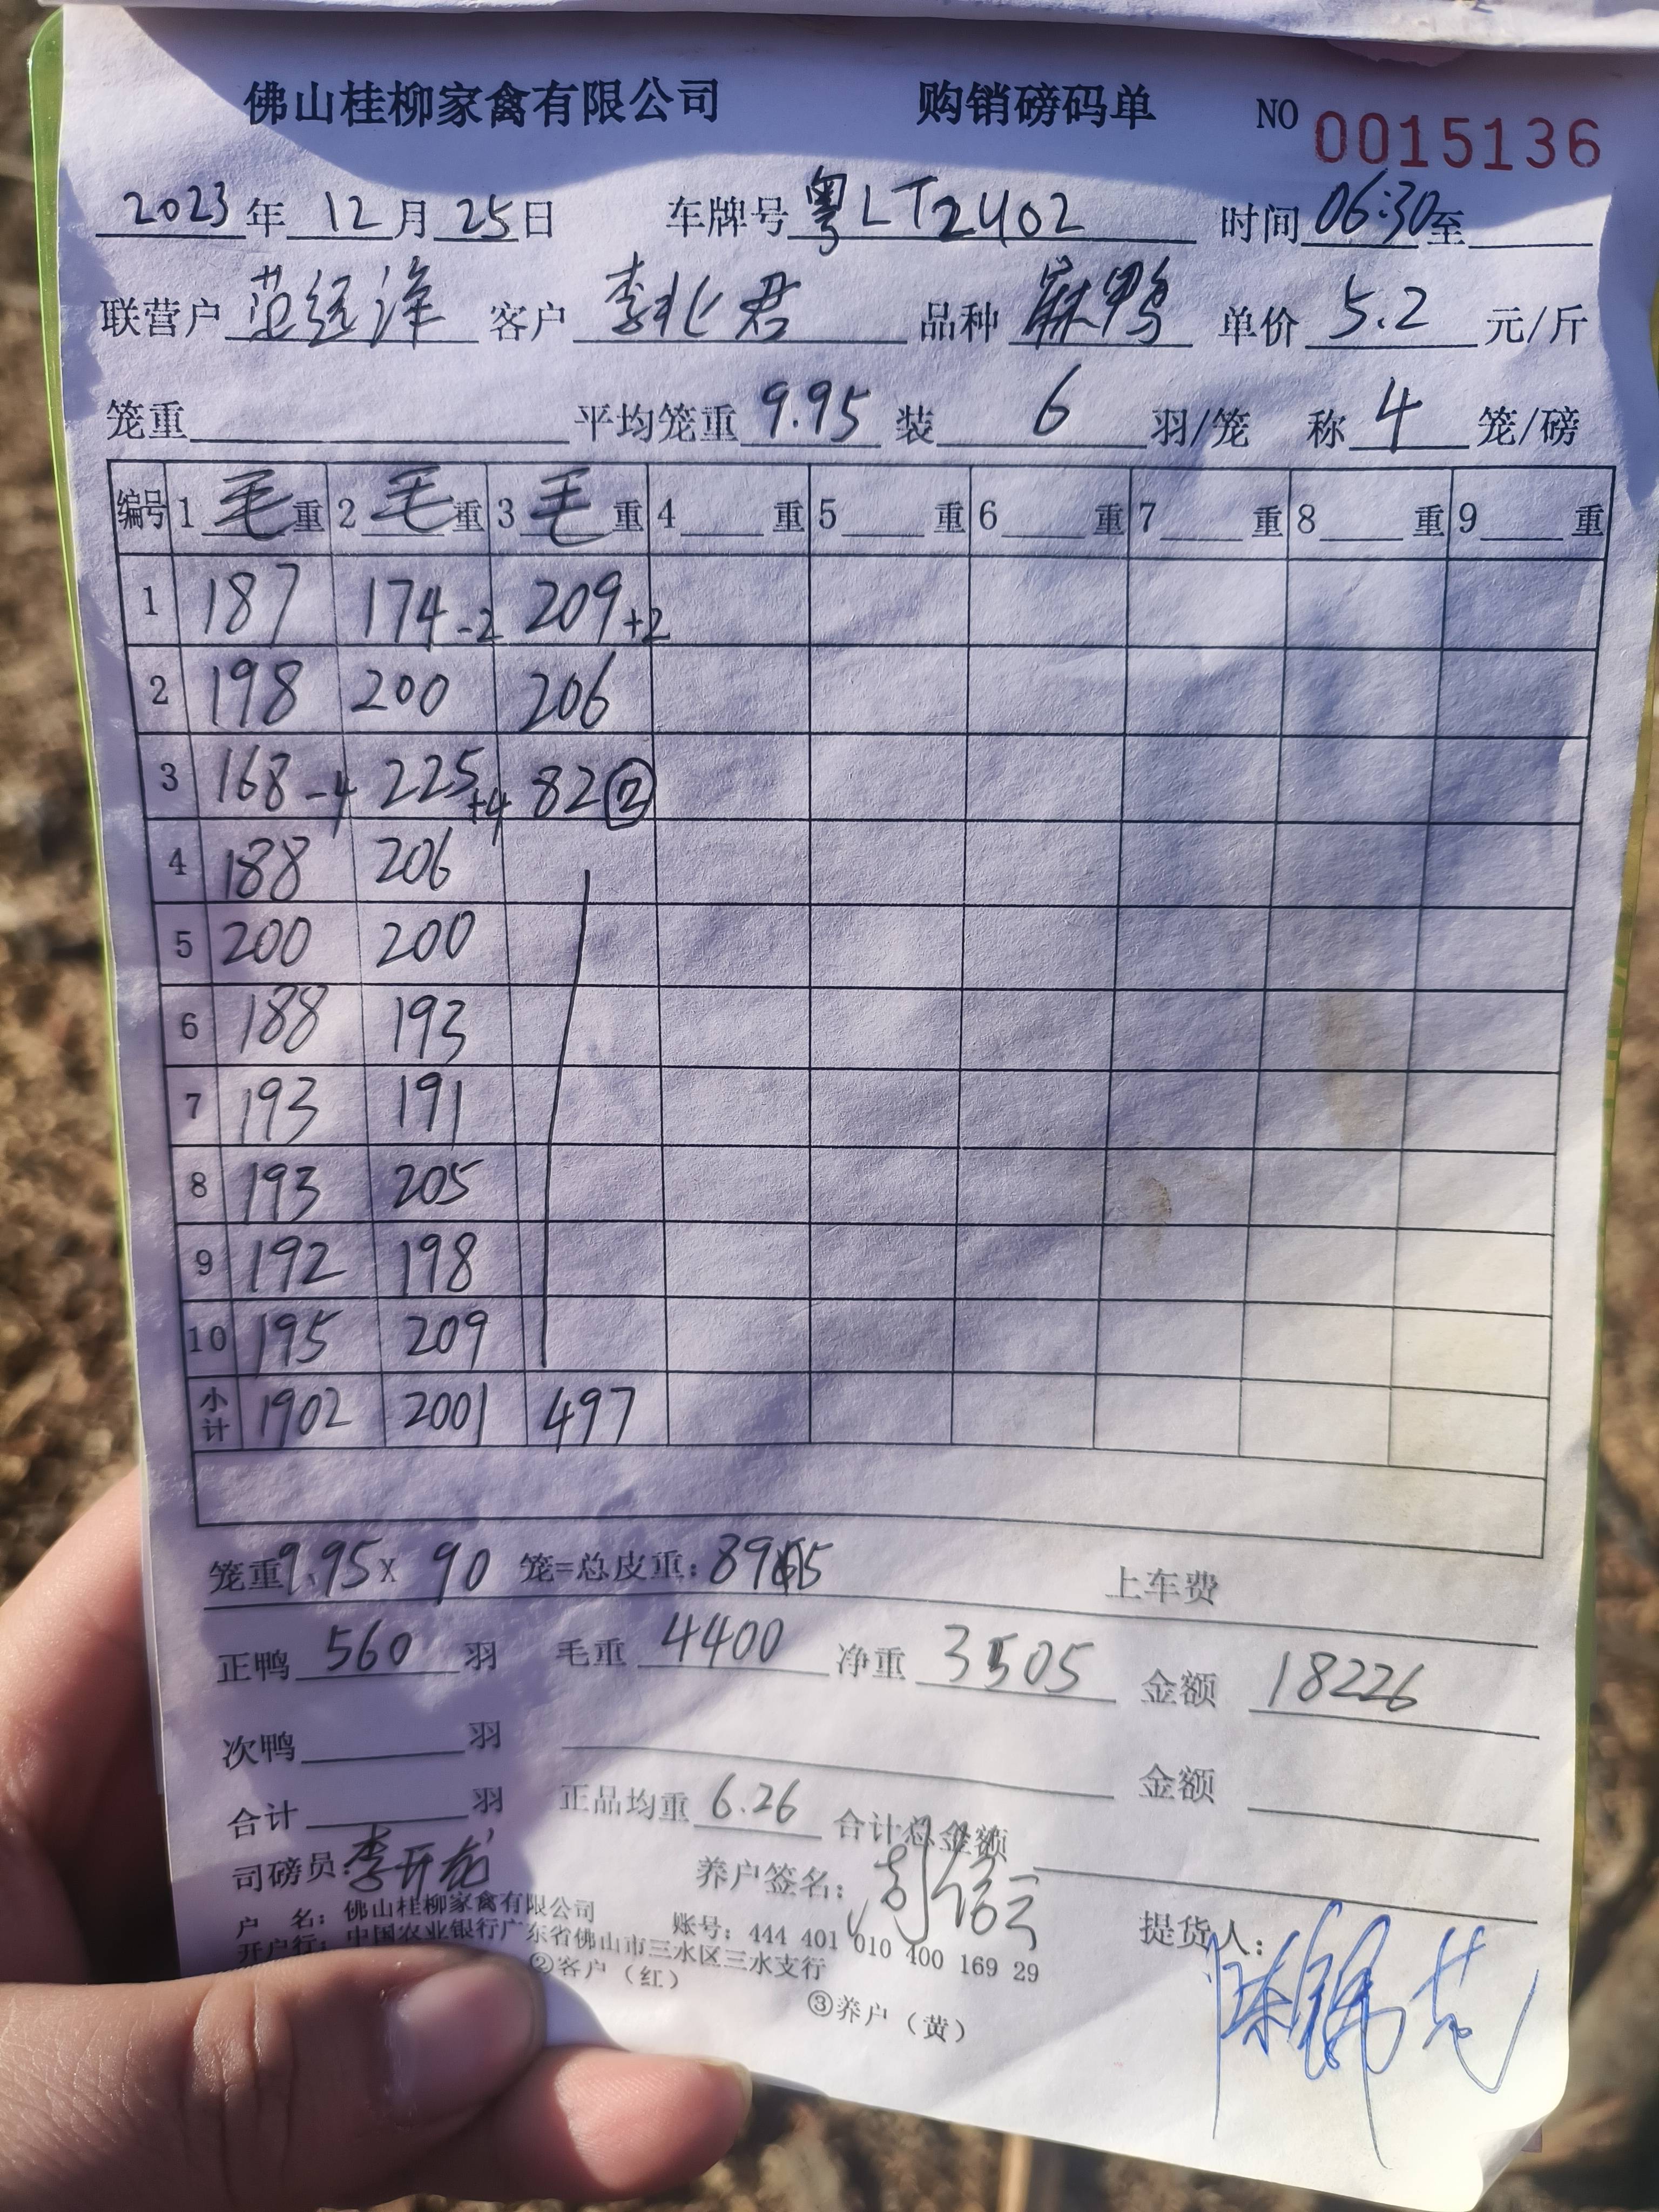 佛山桂柳家禽有限公司 购销磅码单 NO 0015136
2023年12月25日 车牌号粤LT2402 时间06:30至
联营户 客户 李兆君 品种 麻鸭 单价 5.2 元/斤
笼重 平均笼重 9.95 装 6 羽/笼 称 4 笼/磅
编号 1毛重 2毛重 3毛重 4 重 5 重 6 重 7 重 8 重 9 重
1 187 174-2 209+2
2 198 200 206
3 168-4 225+4 82②
4 188 206
5 200 200
6 188 193
7 193 191
8 193 205
9 192 198
10 195 209
小计 1902 2001 497
笼重9.95X 90 笼=总皮重: 上车费
正鸭 560 羽 毛重 4400 净重 3505 金额 18226
次鸭 羽 金额
合计 羽 正品均重 6.26 合计总金额
司磅员 李开龙 养户签名: 提货人:
户 名:佛山桂柳家禽有限公司 账号:444 401 010 400 169 29
开户行:中国农业银行广东省佛山市三水区三水支行
②客户(红) ③养户(黄)